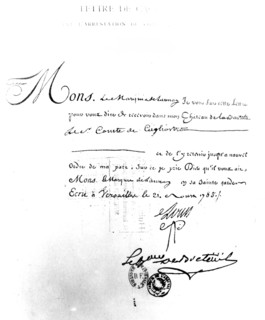 LETTRE DE C
Mons. Le Marquis de Launay Je vous fais cette Lettre
pour vous dire de recevoir dans mon Château de la Bastille
Le Sr. Comte de Cagliostro
et de l'y retenir jusqu'à nouvel
Ordre de ma part. Sur ce je prie Dieu qu'il vous ait,
Mons. le Marquis de Launay en sa Sainte garde
Ecrit à Versailles le 21 1785
Louis
Le Bon de Breteuil